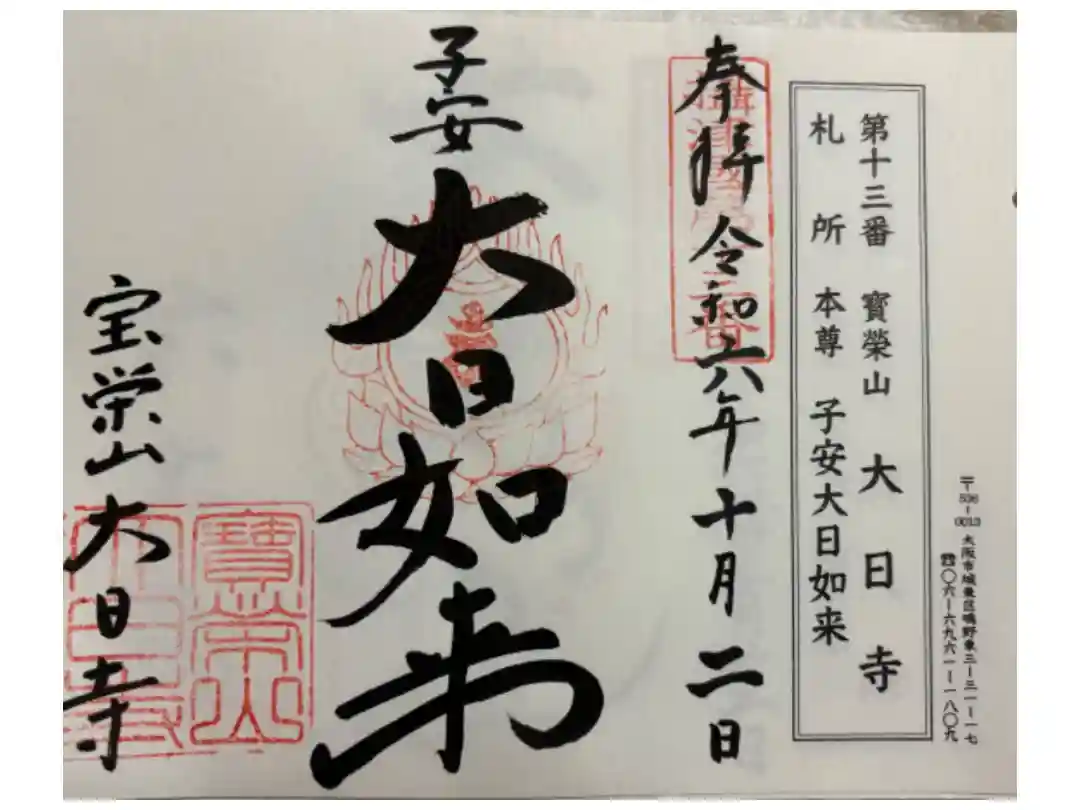 〒536-0013 大阪市城東区鴫野東三-三一-一七
☎〇六-六九六一-一八〇九
第十三番 寳榮山 大日寺
札所本尊 子安大日如来
奉拝 令和六年十月二日
子安
大日如来
宝栄山大日寺
寳榮山
大日寺